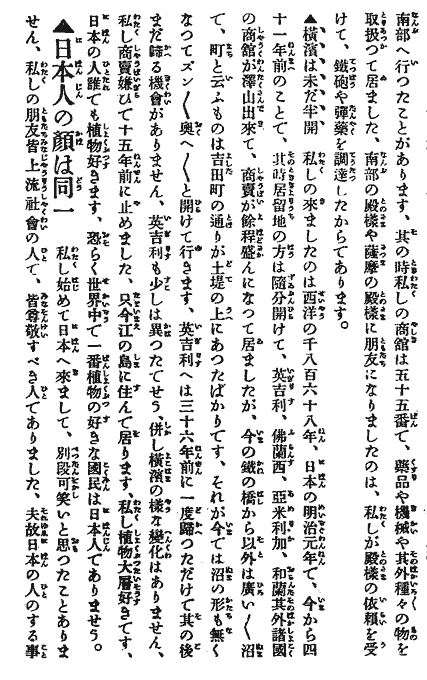 南部へ行つたことがあります、其の時私しの商館は五十五番で、藥品や機械や其外種々の物を
取扱つて居ました、南部の殿樣や薩摩の殿樣に朋友になりましたのは、私しが殿樣の依頼を受
けて、鐵砲や彈藥を調達したからであります。
▲橫濱は未だ半開 私しの來ましたのは西洋の千八百六十八年、日本の明治元年で、今から四
十一年前のことで、其時居留地の方は隨分開けて、英吉利、佛蘭西、亞米利加、和蘭其外諸國
の商館が澤山出來て、商賣が餘程盛んになつて居ましたが、今の鐵の橋から以外は廣い〱沼
で、町と云ふものは吉田町の通りが土堤の上にあつたばかりです、それが今では沼の形も無く
なつてズン〱奥へ〱と開けて行きます、英吉利へは三十六年前に一度歸つただけで其の後
まだ歸る機會がありません、英吉利も少しは異つたでせう、併し橫濱の樣な變化はありません、
私し商賣嫌ひで十五年前に止めました、只今江の島に住んで居ります、私し植物大層好きです、
日本の人誰でも植物好きます、恐らく世界中で一番植物の好きな國民は日本人でありませう。
▲日本人の顏は同一 私し始めて日本へ來まして、別段可笑いと思つたことありま
せん、私しの朋友皆上流社會の人で、皆尊敬すべき人でありました、夫故日本の人のする事